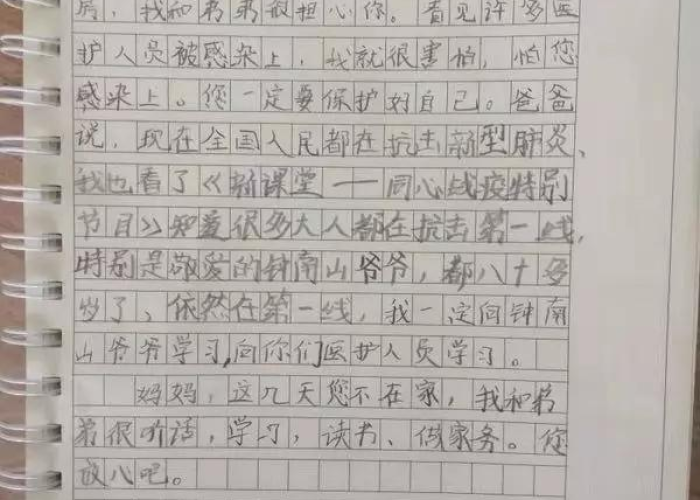 房，我和弟弟很担心你。看见许多医
护人员被感染上，我就很害怕，怕您
感染上。您一定要保护好自己。爸爸
说，现在全国人民都在抗击新型肺炎、
我也看了《新课堂——同心战疫特别
节目》知道很多大人都在抗击第一线，
特别是敬爱的钟南山爷爷，都八十多
岁了、依然在第一线，我一定向钟南
山爷爷学习,向你们医护人员学习。
妈妈，这几天您不在家，我和弟
弟很听话，学习，读书、做家务。您
放心吧。